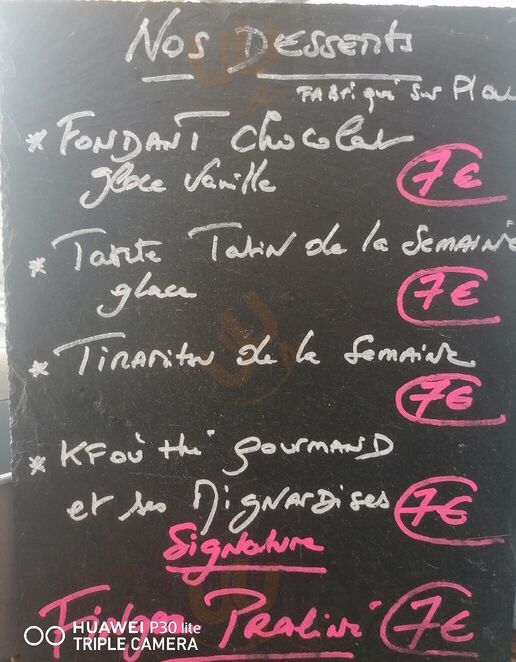 Nos Desserts
Fabriqué sur Pla
* Fondant Chocolat
glace Vanille 7€
* Tarte Tatin de la Semaine
glace 7€
* Tiramisu de la Semaine
7€
* KFoù thé gourmand
et ses Mignardises 7€
Signature
Praliné 7€
HUAWEI P30 lite
TRIPLE CAMERA